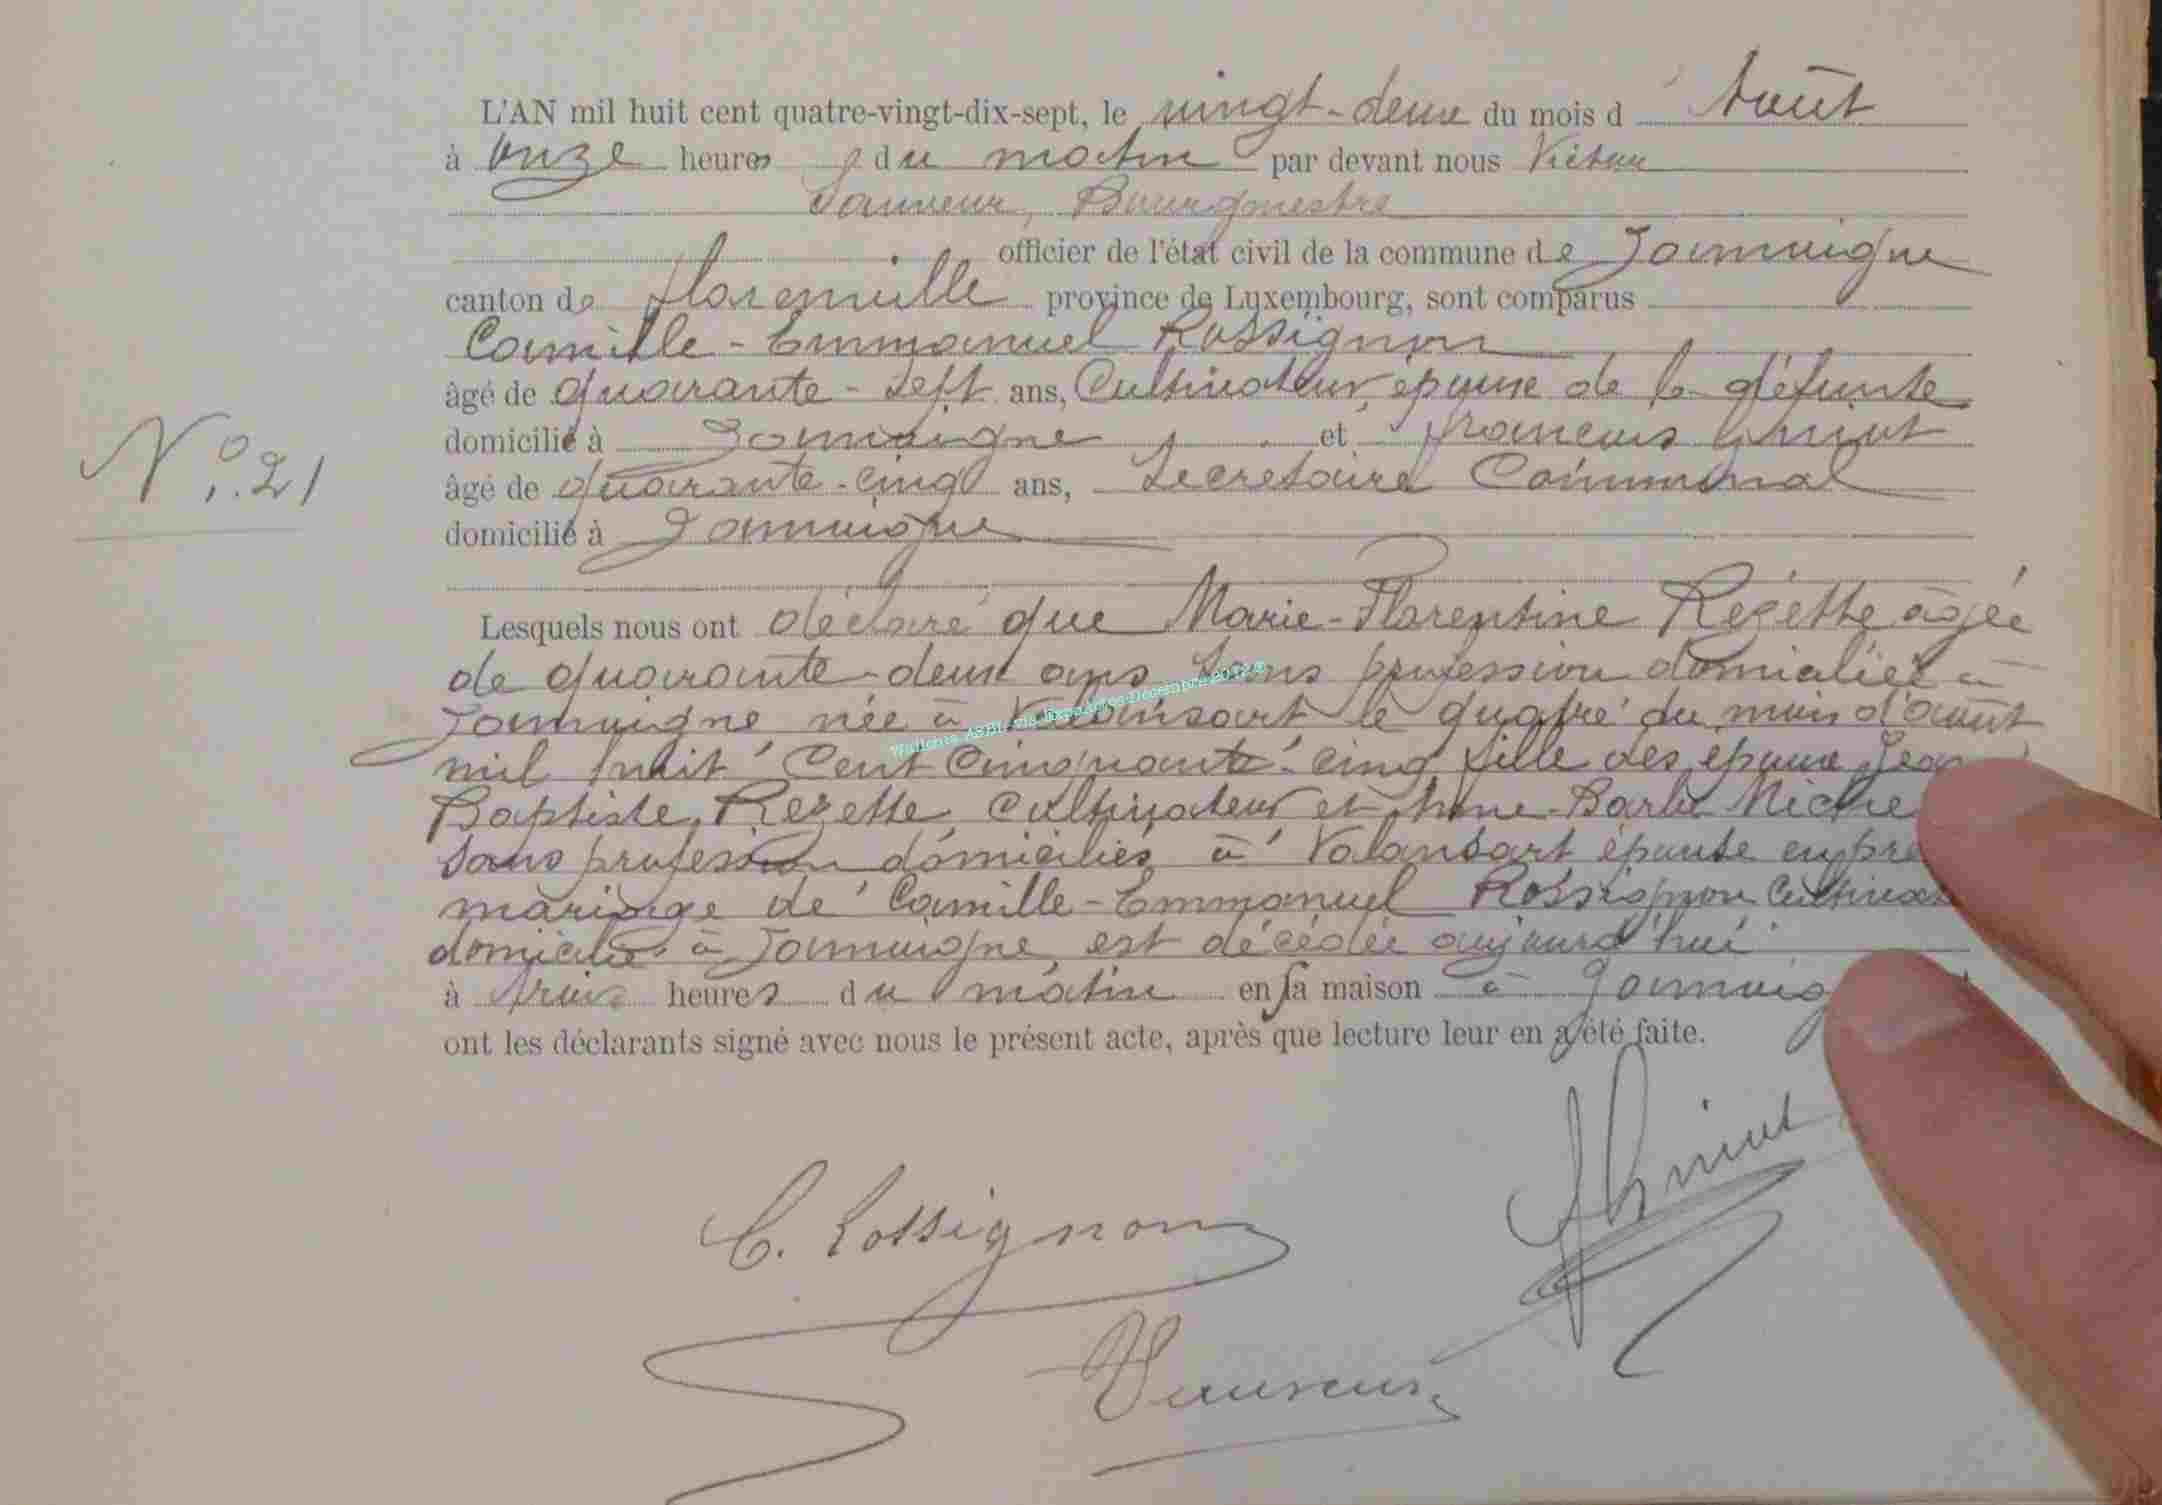 L'AN mil huit cent quatre-vingt-dix-sept, le vingt-deux du mois d'Août
à onze heures du matin par devant nous Victor
Sauveur, Bourgmestre
officier de l'état civil de la commune de Jamoigne
canton de Florenville province de Luxembourg, sont comparus
Camille-Emmanuel Rossignon
âgé de quarante-sept ans, Cultivateur, époux de la défunte
domicilié à Jamoigne et françois
N° 21
âgé de quarante-cinq ans, Secrétaire Communal
domicilié à Jamoigne
Lesquels nous ont déclaré que Marie-Florentine Rezette âgée
de quarante-deux ans sans profession domiciliée à
Jamoigne née à Valansart le quatre du mois d'août
Wallonia ASBL
mil huit cent cinquante-cinq fille des époux Jean
Baptiste Rezette cultivateur et Anne-Barbe
sans profession domiciliés à Valansart épouse en
mariage de Camille-Emmanuel Rossignon
domicilié à Jamoigne est décédée aujourd'hui
à trois heures du matin en sa maison à
ont les déclarants signé avec nous le présent acte, après que lecture leur en a été faite.
C. Rossignon
VSauveur